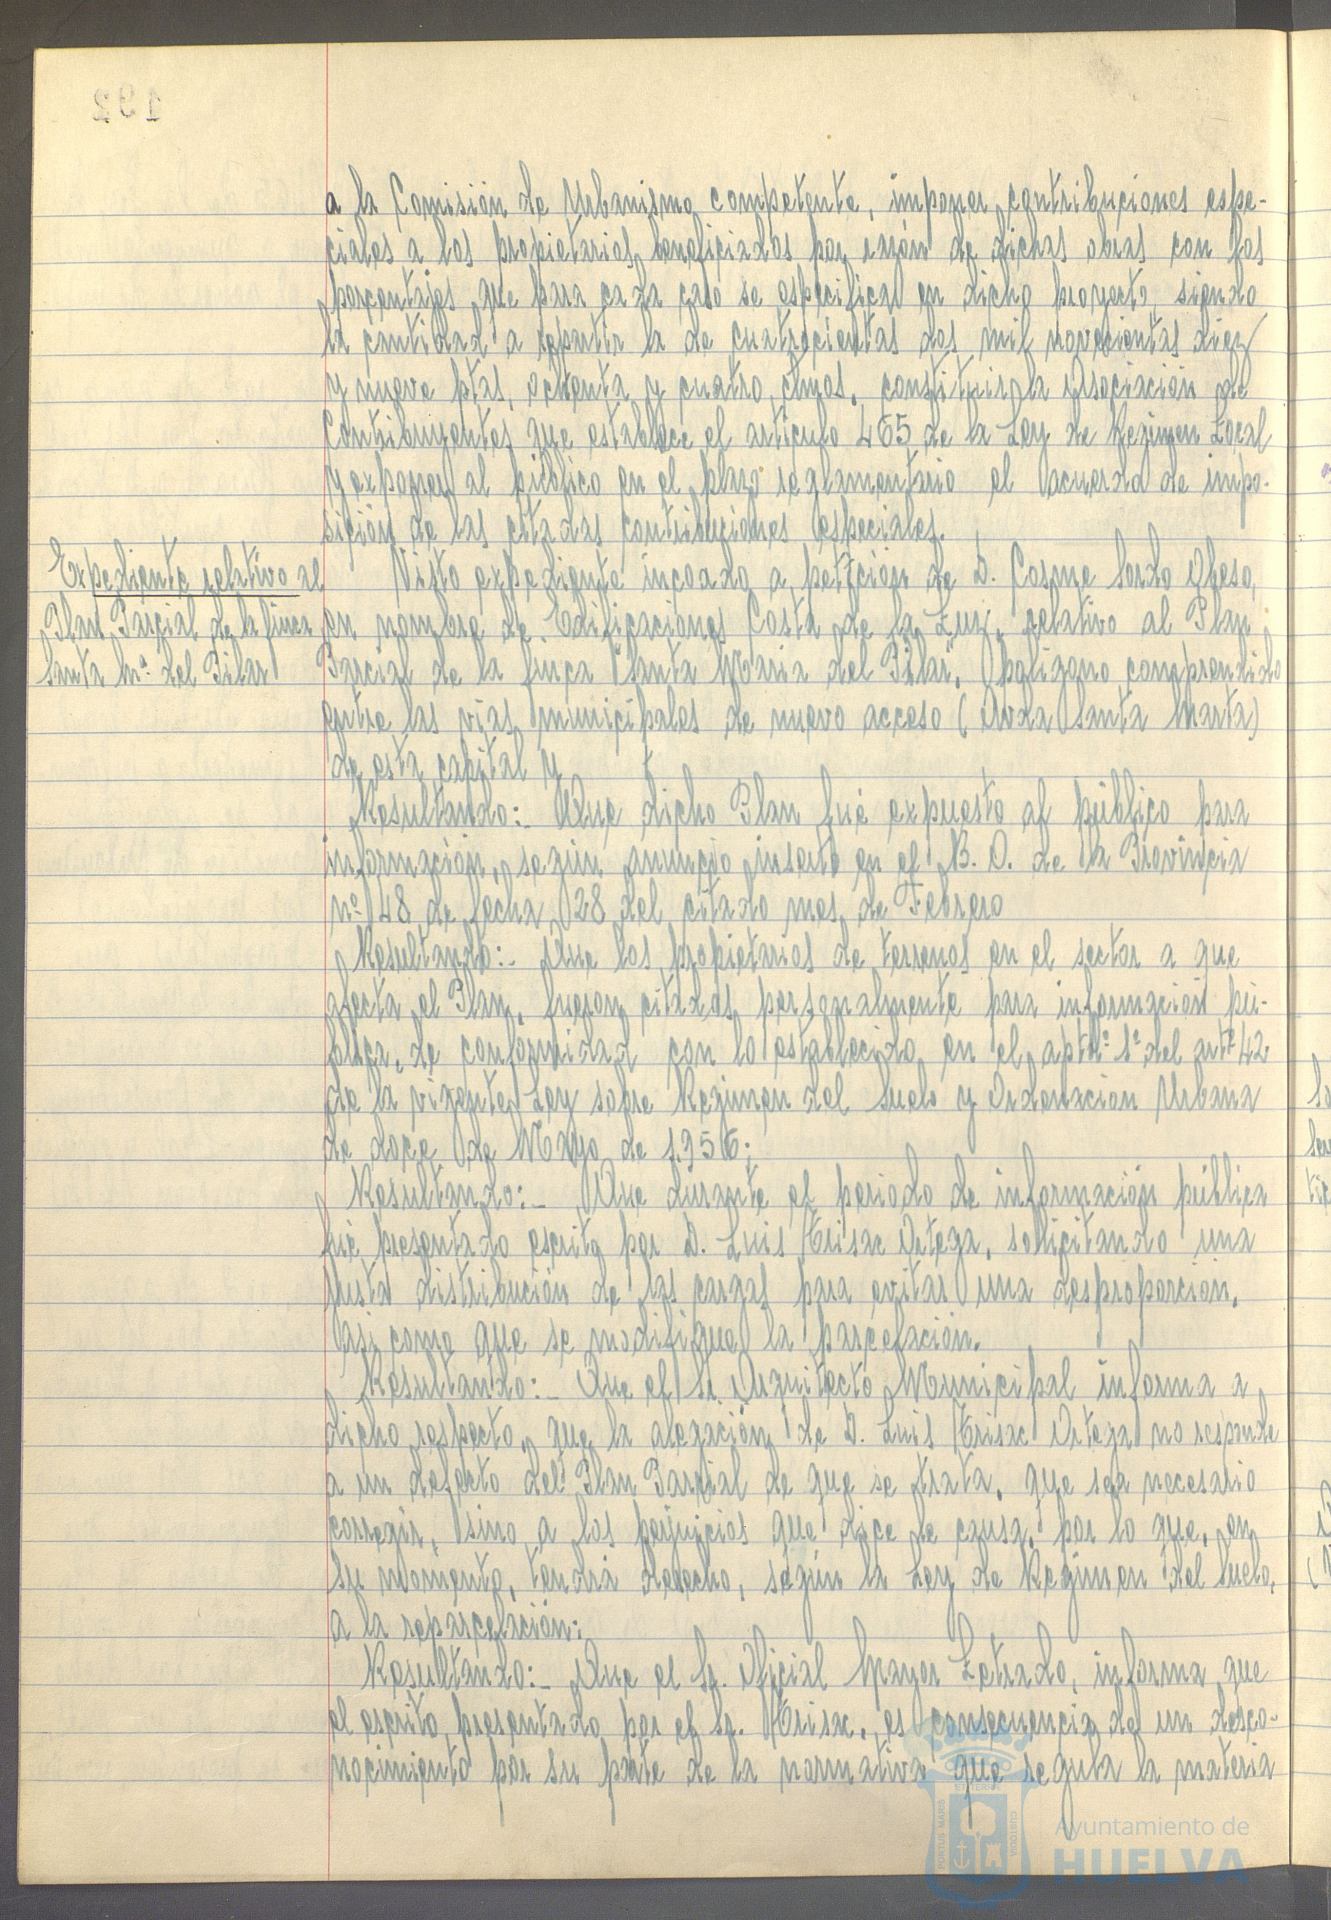 a la Comisión de Urbanismo competente, imponer contribuciones espe-
ciales a los propietarios beneficiados por razón de dichas obras con los
porcentajes que para cada caso se especifica en dicho proyecto, siendo
la cantidad a repartir la de cuatrocientas dos mil novecientas diez
y nueve ptas, ochenta y cuatro ctmos, constituir la Asociación de
Contribuyentes que establece el artículo 465 de la Ley de Regimen Local
y exponer al público en el plazo reglamentario el acuerdo de impo-
sición de las citadas contribuciones especiales.
Expediente relativo al
Plan Parcial de la finca
Santa Mª del Pilar
Visto expediente incoado a petición de D. Cosme Sordo Obeso,
en nombre de "Edificaciones Costa de la Luz", relativo al Plan
Parcial de la finca "Santa Maria del Pilar", Poligono comprendido
entre las vias municipales de nuevo acceso (Avda Santa Marta)
de esta capital y
Resultando:- Que dicho Plan fué expuesto al público para
información, según anuncio inserto en el B. O. de la Provincia
nº 48 de fecha 28 del citado mes de Febrero
Resultando:- Que los propietarios de terrenos en el sector a que
afecta el Plan, fueron citados personalmente para información pú-
blica, de conformidad con lo establecido en el aptdº 1º del artº 42
de la vigente Ley sobre Regimen del Suelo y Ordenacion Urbana
de doce de Mayo de 1.956;
Resultando:- Que durante el periodo de información pública
fué presentado escrito por D. Luis Ortega, solicitando una
justa distribución de las cargas para evitar una desproporción,
asi como que se modifique la parcelación.
Resultando:- Que el Sr. Arquitecto Municipal informa a
dicho respecto, que la alegación de D. Luis Ortega no responde
a un defecto del Plan Parcial de que se trata, que sea necesario
corregir, sino a los perjuicios que dice le causa, por lo que, en
su momento, tendrá derecho, según la Ley de Regimen del Suelo,
a la reparcelación;
Resultando:- Que el Sr. Oficial Mayor Letrado, informa que
el escrito presentado por el Sr. es consecuencia de un desco-
nocimiento por su parte de la normativa que regula la materia
Ayuntamiento de
HUELVA